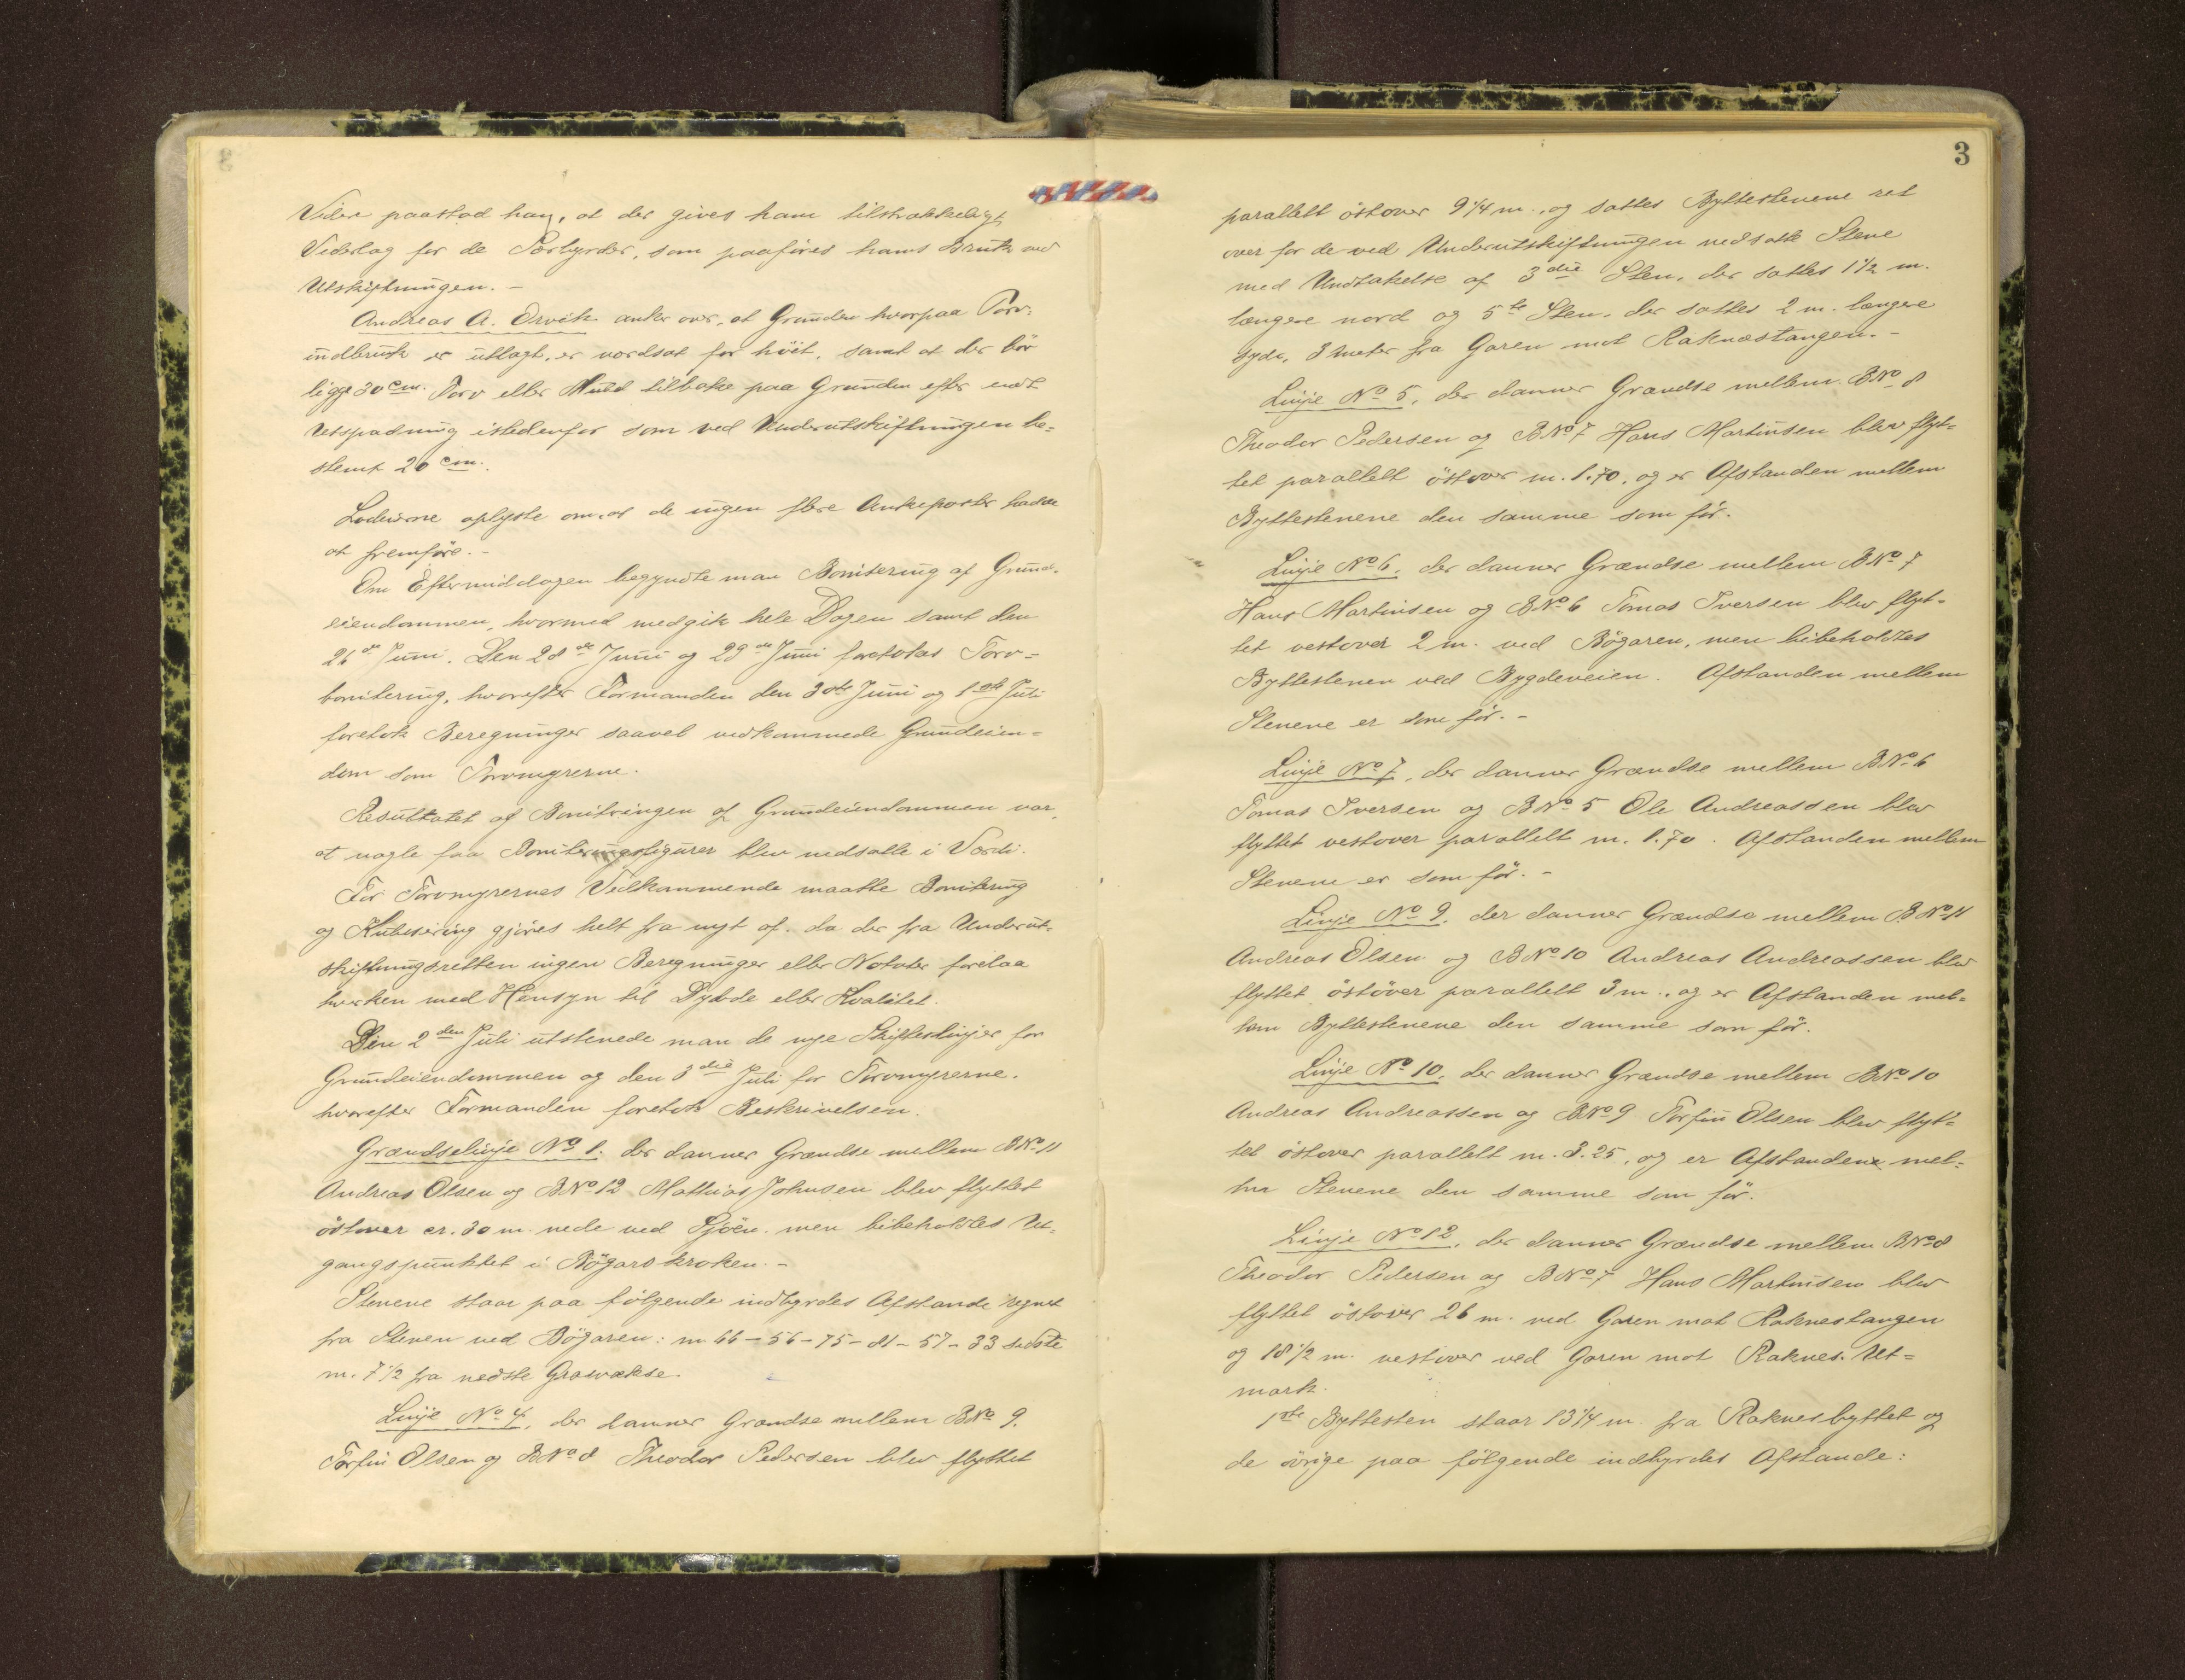 Videre paastod han, at der gives ham tilstrækkeligt
Vederlag for de Særbyrder, som paaføres hans Bruk ved
Utskiftningen. -
Andreas A. Orvik anker over, at Grunden hvorpaa Torv-
indbruk er utlagt, er værdsat for høit, samt at der bør
ligge 30 cm. Torv eller Muld tilbake paa Grunden efter endt
Utspadning istedenfor som ved Underutskiftningen be-
stemt 20 cm.
Lodeierne oplyste om, at de ingen flere Ankeposter hadde
at fremføre. -
Om Eftermiddagen begyndte man Bonitering af Grund-
eiendommen, hvormed medgik hele Dagen samt den
26de Juni. Den 28de Juni og 29de Juni foretokes Torv-
bonitering, hvorefter Formanden den 30te Juni og 1ste Juli
foretok Beregninger saavel vedkommede Grundeien-
dom som Torvmyrerne.
Resultatet af Bonitringen af Grundeiendommen var,
at nogle faa Boniteringsfigurer blev nedsatte i Værdi.
For Torvmyrernes Vedkommende maatte Bonitering
og Kubisering gjøres helt fra nyt af, da der fra Underut-
skiftningsretten ingen Beregninger eller Notater forelaa
hverken med Hensyn til Dybde eller Kvalitet.
Den 2den Juli utstenede man de nye Skifteslinjer for
Grundeiendommen og den 3die Juli for Torvmyrerne.
hvorefter Formanden foretok Beskrivelsen.
Grændselinje No 1. der danner Grændse mellem BNo 11
Andreas Olsen og BNo 12 Mathias Johnsen blev flyttet
östover cr. 30 m. nede ved Sjöen. men bibeholdtes Ut-
gangspunktet i Bögarskroken. -
Stenene staar paa følgende indbyrdes Afstande regnet
fra Stenen ved Bögaren: m 66 - 56 - 75 - 81 - 57 - 33 sidste
m. 7 1/2 fra nedste Græsvækse.
Linje No 4, der danner Grændse mellem BNo 9.
Torfin Olsen og BNo 8 Theodor Pedersen blev flyttet
3
parallelt östover 9 1/4 m., og sattes Byttestenene ret
over for de ved Underutskiftningen nedsatte Stene
med Undtakelse af 3die Sten, der sattes 1 1/2 m.
længere nord og 5te Sten, der sattes 2 m. længere
syd, 3 meter fra Garen mot Raknæstangen. -
Linje No 5, der danner Grændse mellem BNo 8
Theodor Pedersen og BNo 7 Hans Martinsen blev flyt-
tet parallelt östover m. 1.70, og er Afstanden mellem
Byttestenene den samme som för.
Linje No 6. der danner Grændse mellem BNo 7
Hans Martinsen og BNo 6 Tomas Iversen blev flyt-
tet vestover 2 m. ved Bögaren, men bibeholdtes
Byttestenen ved Bygdeveien. Afstanden mellem
Stenene er som för. -
Linje No 7, der danner Grændse mellem BNo 6
Tomas Iversen og BNo 5 Ole Andreassen blev
flyttet vestover parallelt m. 1.70. Afstanden mellem
Stenene er som för. -
Linje No 9, der danner Grændse mellem BNo 11
Andreas Olsen og BNo 10 Andreas Andreassen blev
flyttet östover parallelt 3 m., og er Afstanden mel-
lem Byttestenene den samme som för.
Linje No 10, der danner Grændse mellem BNo 10
Andreas Andreassen og BNo 9 Torfin Olsen blev flyt-
tet östover parallelt m. 3.25, og er Afstandene mel-
lem Stenene den samme som för.
Linje No 12, der danner Grændse mellem BNo 8
Theodor Pedersen og BNo 7 Hans Martinsen blev
flyttet östover 26 m. ved Garen mot Raknestangen
og 18 1/2 m. vestover ved Garen mot Raknes Ut-
mark.
1ste Byttesten staar 13 1/4 m. fra Raknesbyttet og
de övrige paa fölgende indbyrdes Afstande: